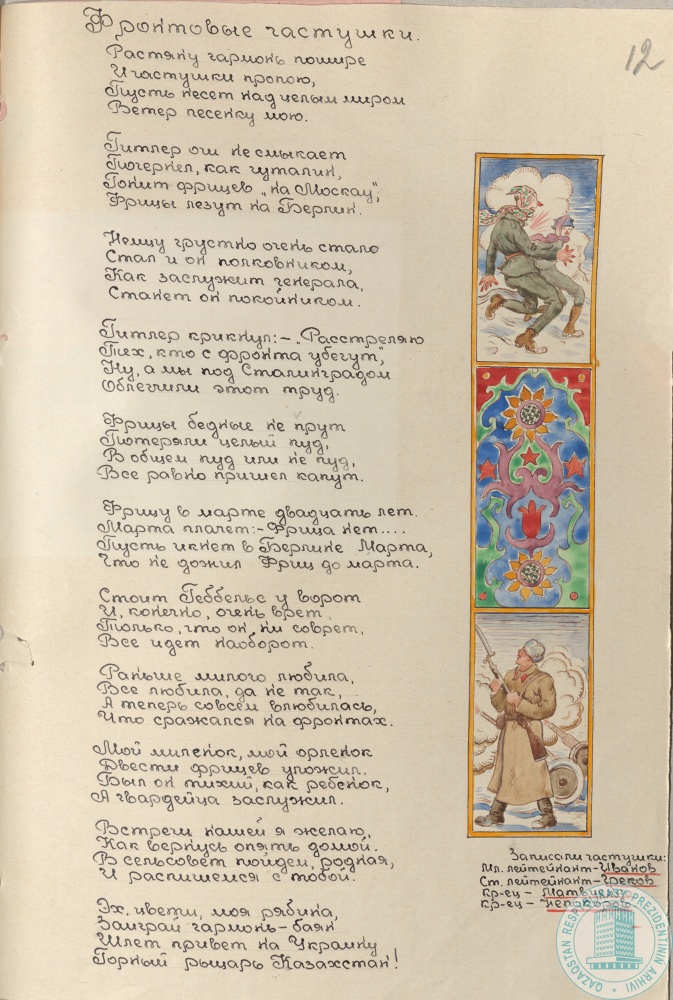 Фронтовые частушки.
12
Растяну гармонь пошире
И частушки пропою,
Пусть несет над целым миром
Ветер песенку мою.
Гитлер очи не смыкает
Почернел, как гуталин,
Гонит фрицев „на Москау",
Фрицы лезут на Берлин.
Немцу грустно очень стало
Стал и он полковником,
Как заслужит генерала,
Станет он покойником.
Гитлер крикнул:-„Расстреляю
Тех, кто с фронта убегут",
Ну, а мы под Сталинградом
Облегчили этот труд.
Фрицы бедные не прут
Потеряли целый пуд,
В общем пуд или не пуд,
Все равно пришел капут.
Фрицу в марте двадцать лет.
Марта плачет:-Фрица нет....
Пусть икнет в Берлине Марта,
Что не дожил Фриц до марта.
Стоит Геббельс у ворот
И, конечно, очень врет,
Только, что он, ни соврет,
Все идет наоборот.
Раньше милого любила,
Все любила, да не так,
А теперь совсем влюбилась,
Что сражался на фронтах.
Мой миленок, мой орленок
Двести фрицев уложил.
Был он тихий, как ребенок,
А гвардейца заслужил.
Встречи нашей я желаю,
Как вернусь опять домой.
В сельсовет пойдем, родная,
И распишемся с тобой.
Эх цвети, моя рябина,
Заиграй гармонь-баян
Шлет привет на Украину
Горный рыцарь Казахстан!
Записали частушки:
Мл. лейтейнант-Иванов
Ст. лейтейнант-Греков
Кр-ец -
Кр-ец - Непокорого
QAZAQSTAN RESPÝBLIKASY PREZIDENTINIŃ ARHIVI